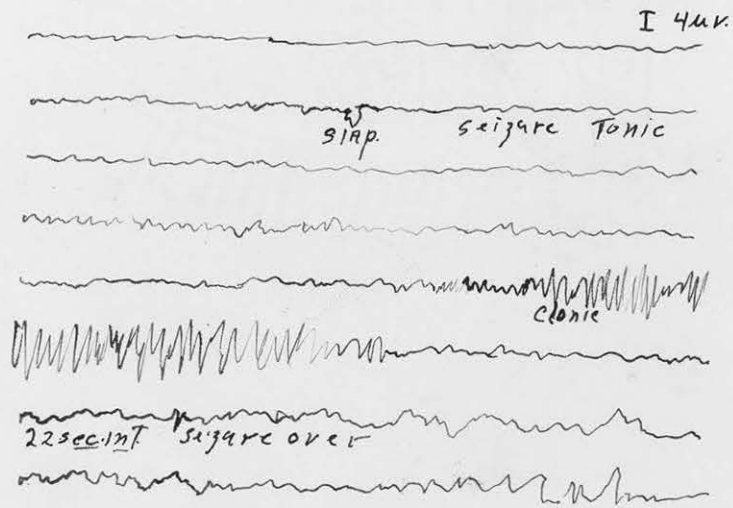 I 4uv.
slap. seizare Tonic
clonic
22sec.int. seizare over